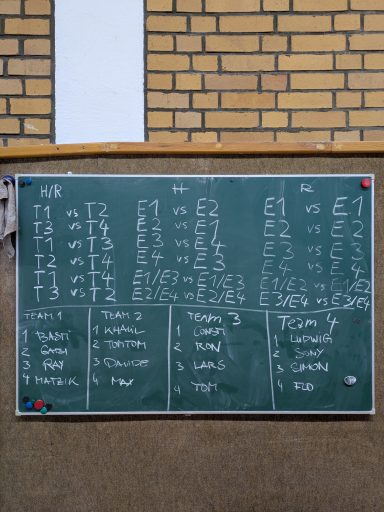 H/R H R
T1 vs T2 E1 vs E2 E1 vs E1
T3 vs T4 E2 vs E1 E2 vs E2
T1 vs T3 E4 vs E3 E3 vs E3
T2 vs T4 E3 vs E4 E4 vs E4
T1 vs T4 E1/E3 vs E1/E3 E1/E2 vs E1/E2
T3 vs T2 E2/E4 vs E2/E4 E3/E4 vs E3/E4
TEAM 1
1 BASTI
2
3 RAY
4 MATZIK
TEAM 2
1 KHALIL
2 TOMTOM
3 DAVIDE
4 MAX
TEAM 3
1 CONSTI
2 RON
3 LARS
4 TOM
Team 4
1 LUDWIG
2 SONY
3 SIMON
4 FLO